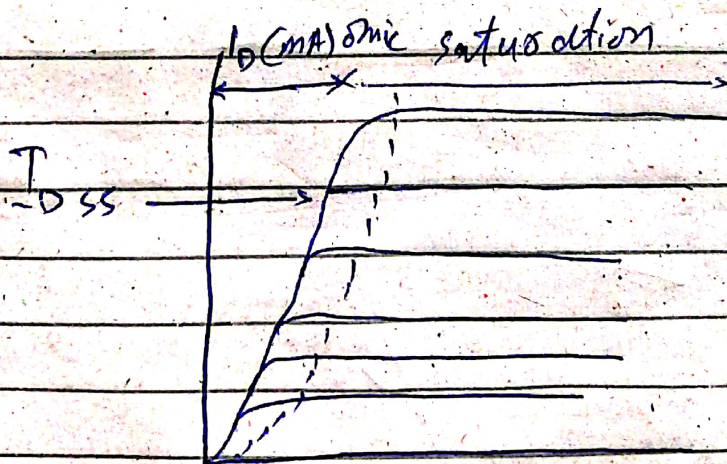 I_D(mA) ohmic saturation
I_DSS